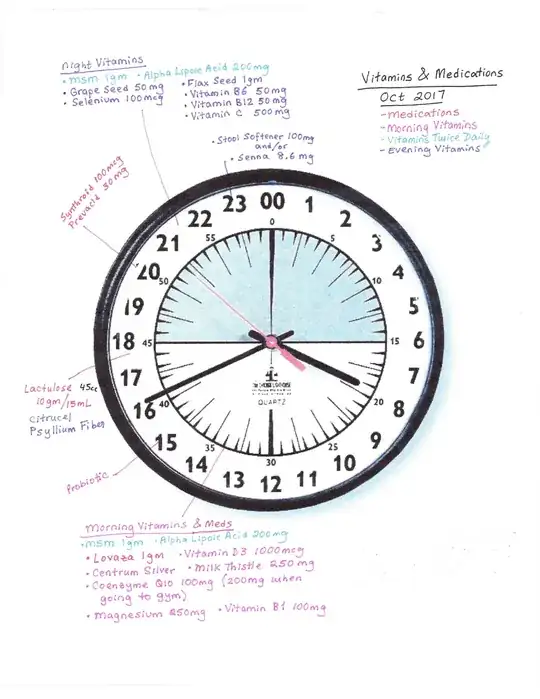 Night Vitamins
• MSM 1gm • Alpha Lipoic Acid 200mg
• Grape Seed 50mg • Flax Seed 1gm
• Selenium 100mcg • Vitamin B6 50mg
• Vitamin B12 50mg
• Vitamin C 500mg
• Stool Softener 100mg
and/or
• Senna 8.6 mg
Vitamins & Medications
Oct 2017
- Medications
- Morning Vitamins
- Vitamins Twice Daily
- Evening Vitamins
Synthroid 100mcg
Prevacid 30mg
00
1
2
3
4
5
6
7
8
9
10
11
12
13
14
15
16
17
18
19
20
21
22
23
0
5
10
15
20
25
30
35
40
45
50
55
QUARTZ
Lactulose 45cc
10gm/15mL
Citrucel
Psyllium Fiber
Probiotic
Morning Vitamins & Meds
• MSM 1gm • Alpha Lipoic Acid 200mg
• Lovaza 1gm • Vitamin D3 1000mcg
• Centrum Silver • Milk Thistle 250mg
• Coenzyme Q10 100mg (200mg when
going to gym)
• Magnesium 250mg • Vitamin B1 100mg